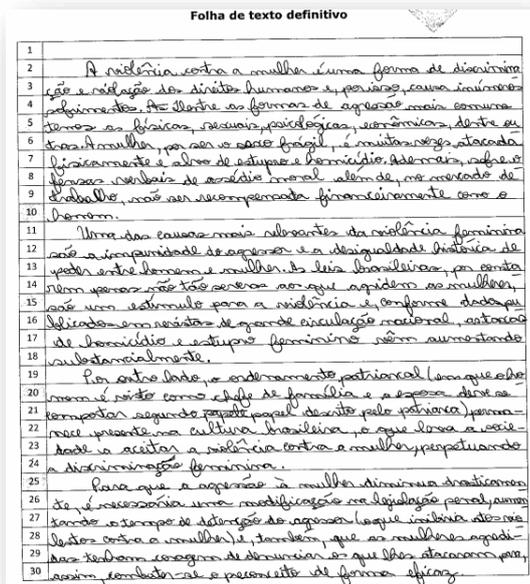 Folha de texto definitivo
1
2 A violência contra a mulher é uma forma de discrimina
3 ção e violação dos direitos humanos e, por isso, causa inúmeros
4 sofrimentos. As Dentre as formas de agressão mais comuns
5 temos as físicas, sexuais, psicológicas, econômicas, dentre ou
6 tras. A mulher, por ser o sexo frágil, é muitas vezes atacada
7 fisicamente e alvo de estupro e homicídio. Ademais, sofre o
8 fensas verbais de assédio moral além de, no mercado de
9 trabalho, não ser recompensada financeiramente como o
10 homem.
11 Uma das causas mais relevantes da violência feminina
12 são a impunidade do agressor e a desigualdade histórica de
13 poder entre homem e mulher. As leis brasileiras, por conta
14 rem penas não tão severas aos que agridem as mulheres,
15 são um estímulo para a violência e, conforme dados pu
16 blicados em revistas de grande circulação nacional, as taxas
17 de homicídio e estupro feminino vêm aumentando
18 substancialmente.
19 Por outro lado, o ordenamento patriarcal (em que o ho
20 mem é visto como chefe de família e a esposa deve se
21 comportar segundo papel descrito pelo patriarca) perma-
22 nece presente na cultura brasileira, o que leva a socie-
23 dade a aceitar a violência contra a mulher, perpetuando
24 a discriminação feminina.
25 Para que a agressão à mulher diminua drasticamen
26 te, é necessária uma modificação na legislação penal, aumen
27 tando o tempo de detenção do agressor (o que inibiria atos vio
28 lentos contra a mulher) e, também, que as mulheres agredi-
29 das tenham coragem de denunciar os que lhes atacaram, para,
30 assim, combater-se o preconceito de forma eficaz.